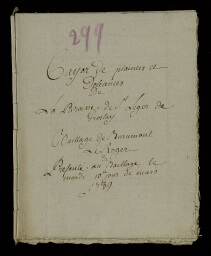 299
Cayer de plaintes et
Doleances
De
La Paroisse de St Leger de
Bailliage de Beaumont
Le Roger
Presenté au Bailliage le
mardi 10e jour de mars
1789